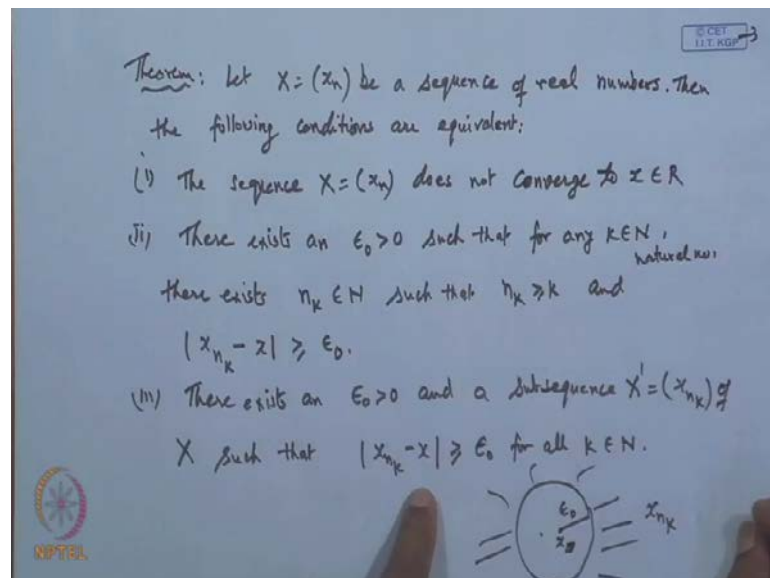 © CET
I.I.T. KGP
Theorem: Let X = (xₙ) be a sequence of real numbers. Then
the following conditions are equivalent:
(i) The sequence X = (xₙ) does not converge to x ∈ R
(ii) There exists an ε₀ > 0 such that for any k ∈ N,
natural no.
there exists nₖ ∈ N such that nₖ ≥ k and
|xₙₖ - x| ≥ ε₀.
(iii) There exists an ε₀ > 0 and a subsequence X' = (xₙₖ) of
X such that |xₙₖ - x| ≥ ε₀ for all k ∈ N.
ε₀
xₙₖ
x
NPTEL